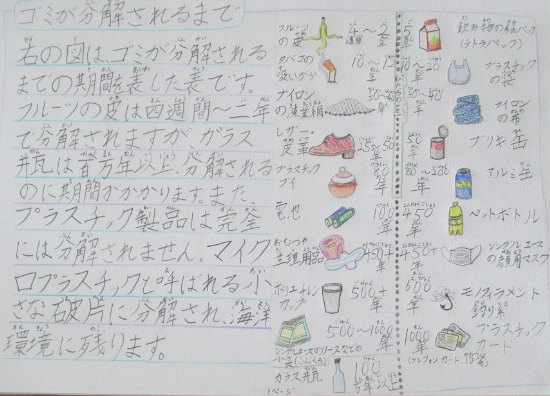 ゴミが分解されるまで
右の図は、ゴミが分解される
までの期間を表した表です。
フルーツの皮は四週間〜二年
で分解されますが、ガラス
瓶は百万年以上分解される
のに期間がかかります。また、
プラスチック製品は完全
には分解されません。マイク
ロプラスチックと呼ばれる小
さな破片に分解され、海洋
環境に残ります。
フルーツの皮
4週間〜2年
タバコの吸いがら
10〜12年
ナイロンの漁業網
30〜40年
レザー・皮革
25〜50年
プラスチックブイ
80年
電池
100年
おむつや生理用品
450+年
ポリエチレンカップ
500+年
シングルユースのソースなどの小袋(こぶくろ)
500〜1000年
ガラス瓶
100万年以上
5年
飲み物の紙パック(テトラパック)
10〜20年
プラスチックの袋
30〜40年
ナイロンの布
50年
ブリキ缶
80〜200年
アルミ缶
450年
ペットボトル
450+年
シングルユースの顔用マスク
600年
モノフィラメント釣り糸
1000年
プラスチックカード
(テレフォンカード、